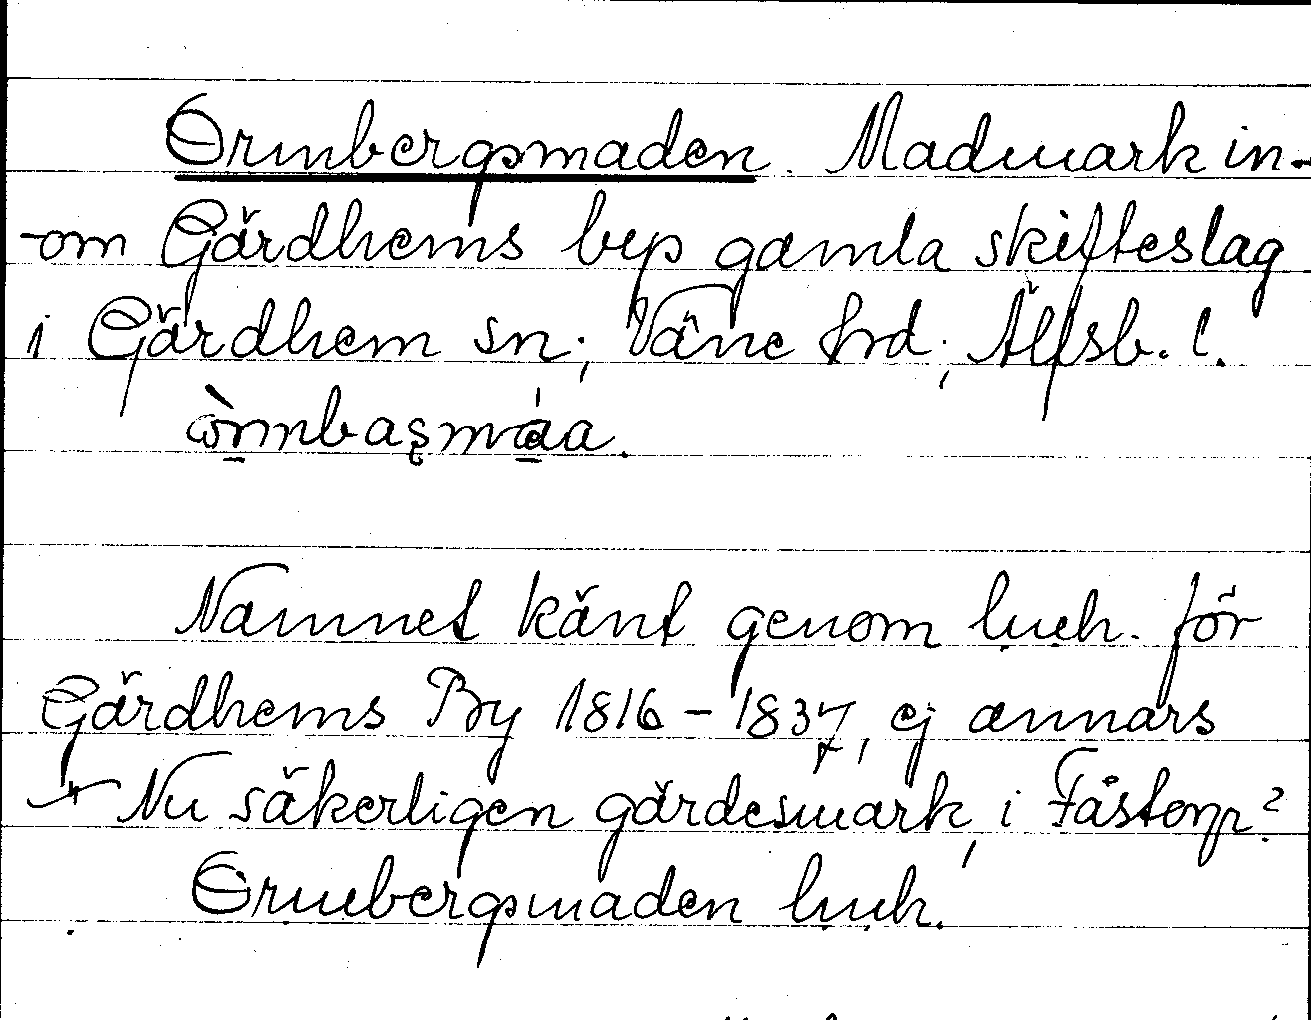 Ormbergsmaden. Madmark in-
-om Gärdhems bys gamla skifteslag
i Gärdhem sn; Väne hrd; Älfsb. l.
Namnet känt genom lmh. för
Gärdhems By 1816-1837, ej annars
Nu säkerligen gärdesmark, i Fåstorp?
Ormbergsmaden lmh.